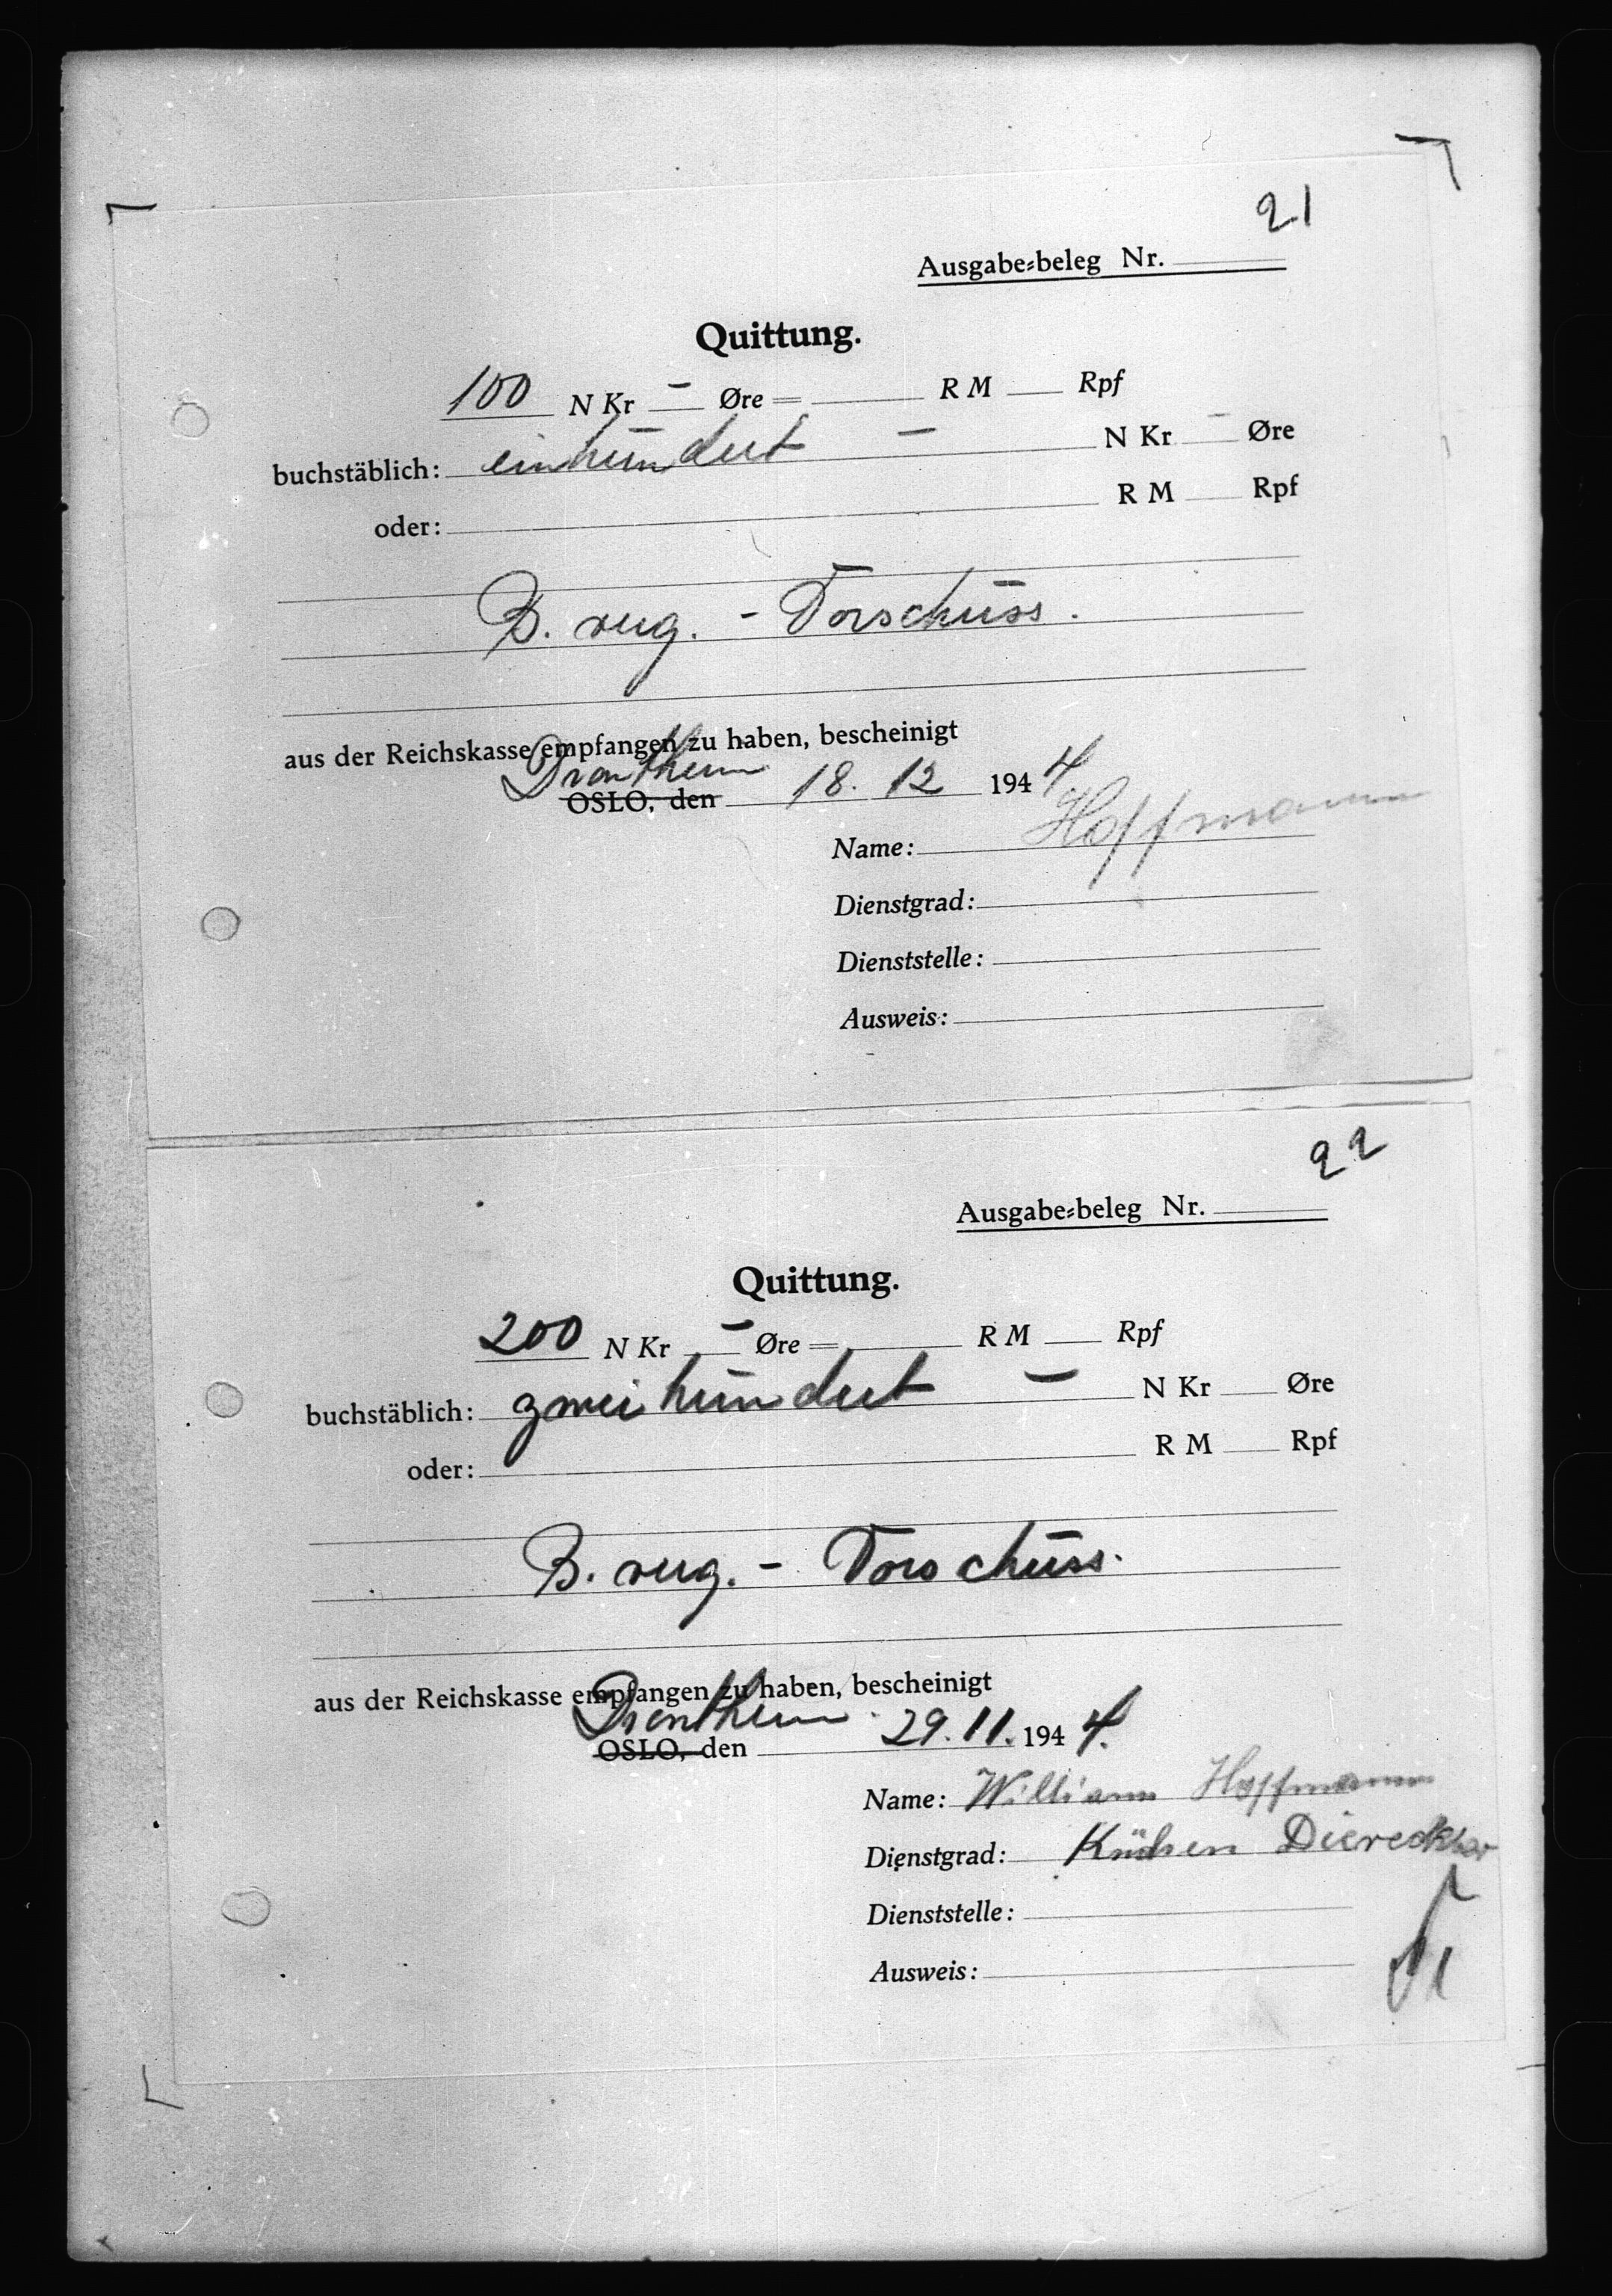 21
Ausgabe-beleg Nr.
Quittung.
100 N Kr — Øre = R M Rpf
buchstäblich: einhundert — N Kr — Øre
oder: R M Rpf
B. – Vorschuss.
aus der Reichskasse empfangen zu haben, bescheinigt
Drontheim
OSLO, den 18. 12 1944
Name: Hoffmann
Dienstgrad:
Dienststelle:
Ausweis:
22
Ausgabe-beleg Nr.
Quittung.
200 N Kr — Øre = R M Rpf
buchstäblich: zweihundert — N Kr Øre
oder: R M Rpf
B. – Vorschuss.
aus der Reichskasse empfangen zu haben, bescheinigt
Drontheim
OSLO, den 29. 11. 1944.
Name: William Hoffmann
Dienstgrad: Küchen
Dienststelle:
Ausweis: